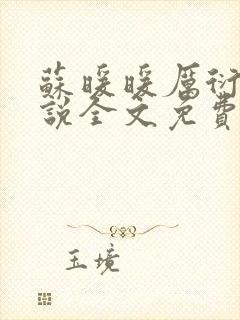 蘇暖暖厲衍
說全文免費
玉境